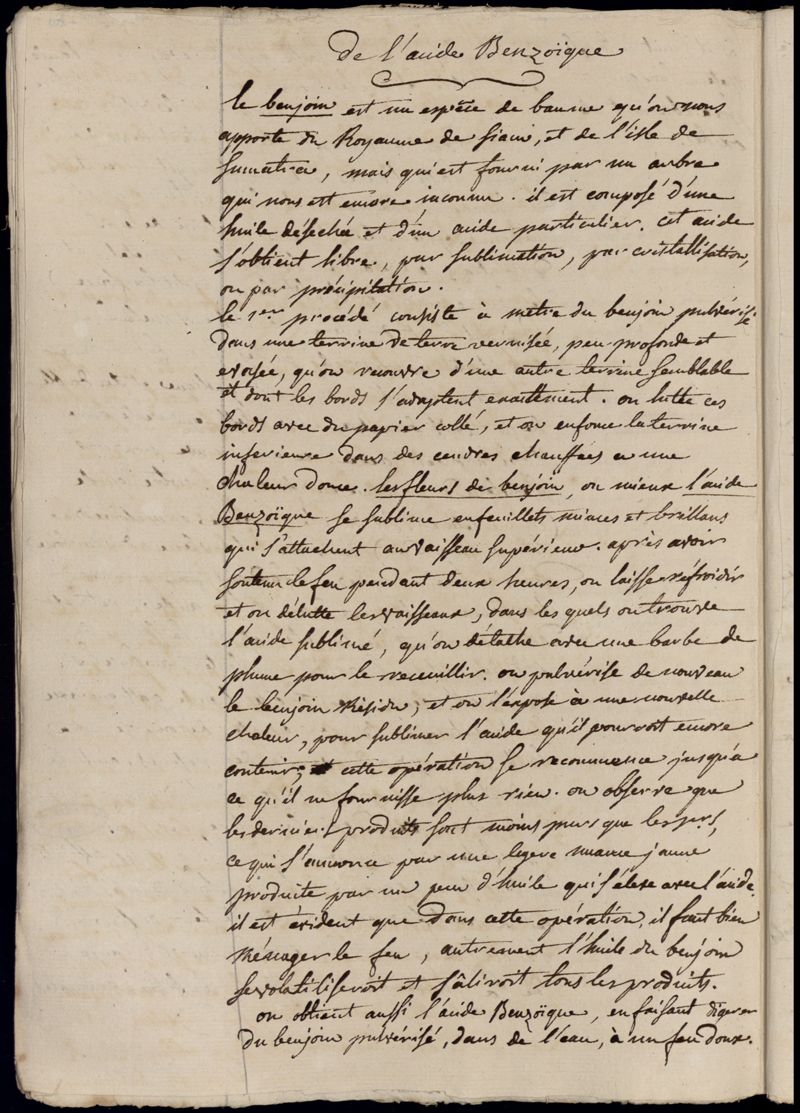 De l'acide Benzoïque
le benjoin est un espèce de baume qu'on nous
apporte du Royaume de Siam, et de l'isle de
Sumatra, mais qui est fourni par un arbre
qui nous est encore inconnu. il est composé d'une
huile déséchée et d'un acide particulier. cet acide
s'obtient libre, par sublimation, par cristallisation,
ou par précipitation.
le 1er procédé consiste à metre du benjoin pulvérisé
dans une terrine de terre vernissée, peu profonde et
evasée, qu'on recouvre d'une autre terrine semblable
et dont les bords s'adaptent exactement. on lutte ces
bords avec du papier collé, et on enfonce la terrine
inferieure dans des cendres chauffées a une
chaleur douce. les fleurs de benjoin, ou mieux l'acide
Benzoïque se sublime en feuillets minces et brillans
qui s'attachent au vaisseau supérieur. après avoir
soutenu le feu pendant deux heures, on laisse réfroidir
et on délutte les vaisseaux, dans les quels on trouve
l'acide sublimé, qu'on détache avec une barbe de
plume pour le receuillir. on pulvérise de nouveau
le benjoin Résidu, et on l'expose à une nouvelle
chaleur, pour sublimer l'acide qu'il pourroit encore
contenir; cette opération se recommence jusqu'a
ce qu'il ne fournisse plus rien. on observe que
les derniers produits sont moins purs que les 1ers,
ce qui s'annonce par une legere nuance jaune
produite par un peu d'huile qui s'éleve avec l'acide.
il est évident que dans cette opération, il faut bien
Ménager le feu, autrement l'huile du benjoin
se volatiliseroit et sâliroit tous les produits.
on obtient aussi l'acide Benzoïque, en faisant digerer
du benjoin pulvérisé, dans de l'eau, à un feu doux.